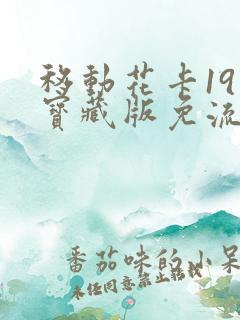 移動花卡19
寶藏版免流
番茄味的小呆
未任同意禁止轉載